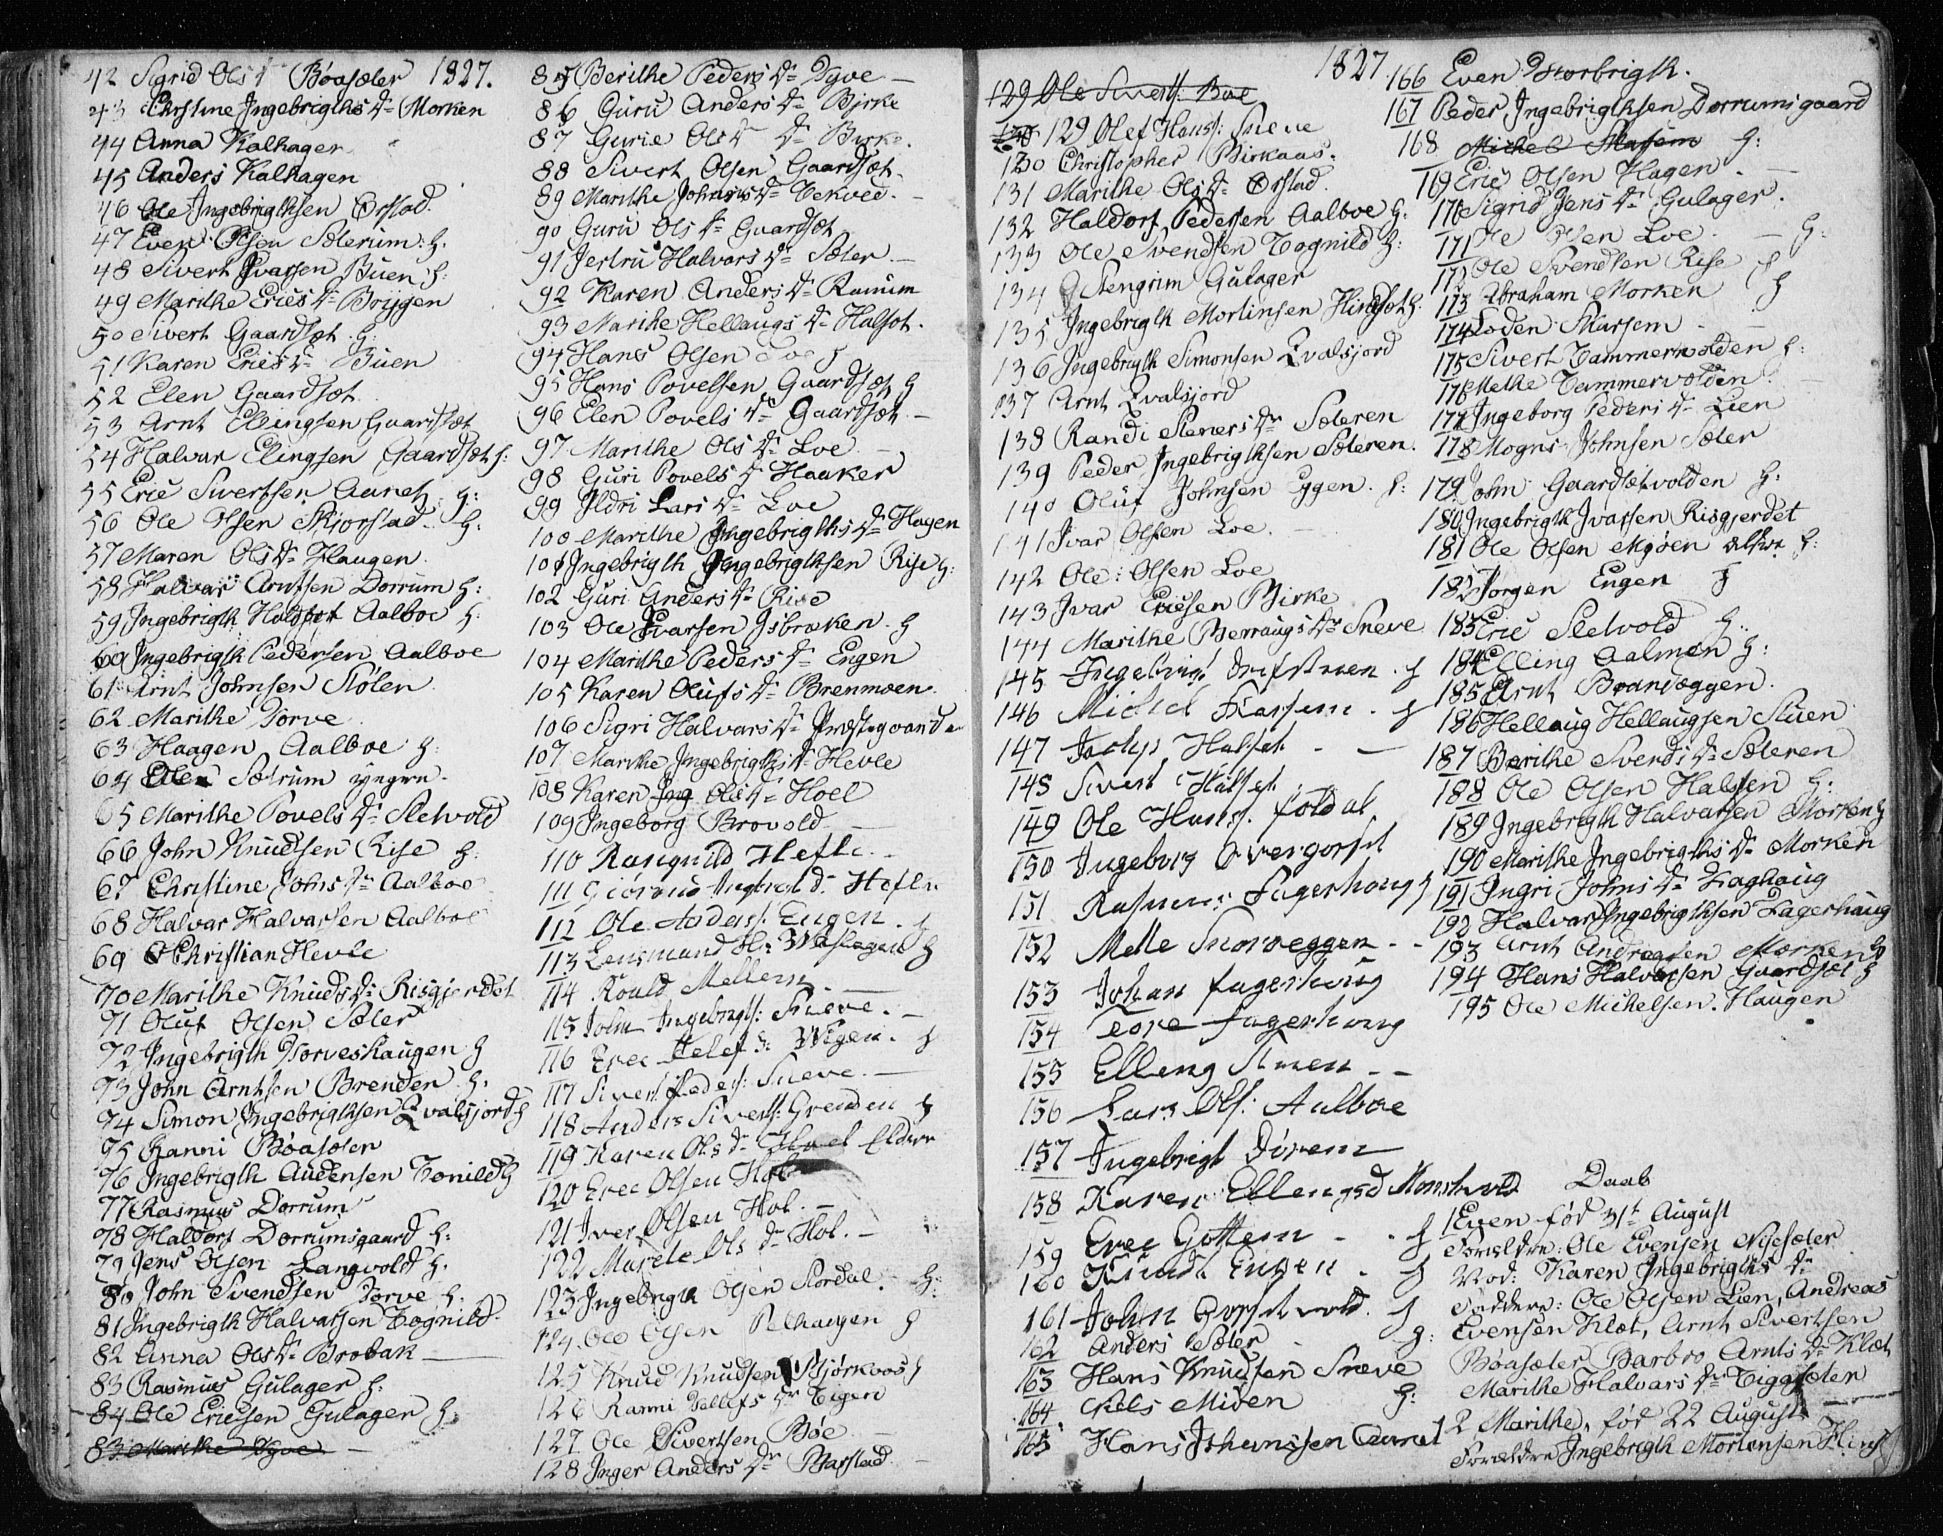 42 Sigrid Ols Dr Bøasæter 1827.
43 Christine Ingebrigths Dr Morken
44 Anna Kalhagen
45 Anders Kalhagen
46 Ole Ingebrigthsen Ørstad.
47 Even Olsen Sæterum. h.
48 Sivert Ivarsen Buen h.
49 Marithe Erics Dr Boggen
50 Sivert Gaardsæt. h.
51 Karen Erics Dr Buen
52 Elen Gaardsæt
53 Arnt Ellingsen Gaardsæt
54 Halvar Elingsen Gaardsæt h:
55 Eric Sivertsen Aunet h:
56 Ole Olsen Skjorstad h:
57 Maren Ols Dr Haugen
58 Halvar Arntsen Dorrum h:
59 Ingebrigth Haldorf Aalboe h.
60 Ingebrigth Pedersen Aalboe
61 Arnt Johnsen Stølen
62 Marithe Torve
63 Haagen Aalboe h:
64 Ole Sætrum yngre.
65 Marithe Povels Dr Sletvold
66 John Knudsen Rise h:
67 Christine Johns Dr Aalboe
68 Halvar Halvarsen Aalboe
69 Christian Hevle
70 Marithe Knuds Dr Risgjerdet
71 Oluf Olsen Sæter
72 Ingebrigth Torveshaugen h
73 John Arntsen Brenden h.
74 Simon Ingebrigthsen Qvalsjord h
75 Ranni Bøasæten
76 Ingebrigth Audensen Tonild h
77 Rasmus Dorrum
78 Haldorf Dorrumsgaard h:
79 Jens Olsen Langvold h.
80 John Svendsen Torve h:
81 Ingebrigth Halvarsen Tognild.
82 Anna Ols Dr Brobak
83 Rasmus Gulager h.
84 Ole Ericsen Gulagen h:
83 Marithe Ygve
85 Berithe Peders Dr Ygve
86 Guru Anders Dr Birke
87 Gurie Ols Dr Birke.
88 Sivert Olsen Gaardsæt.
89 Marithe Johns Dr Vekved.
90 Guru Ols Dr Gaardsæt
91 Jertru Halvars Dr Sæter.
92 Karen Anders Dr Ranum
93 Marithe Hellaugs Dr Halset.
94 Hans Olsen Loe h
95 Hans Povelsen Gaardsæt h
96 Elen Povels Dr Gaardsæt.
97 Marithe Ols Dr Loe
98 Guri Povels Dr Haaker
99 Ildri Lars Dr Loe
100 Marithe Ingebrigths Dr Hagen
101 Ingebrigth Ingebrigthsen Rise h:
102 Guri Anders Dr Rise
103 Ole Ivarsen Isbrekken. h
104 Marithe Peders Dr Engen
105 Karen Olufs Dr Brenmoen.
106 Sigri Halvars Dr
107. Marithe Ingebrigths Dr Hevle
108 Karen Ing Ols Dr Hoel
109 Ingeborg Brovold
110 Rangnild Hefle.
111 Ingebrigt d: Hefle
112 Ole Anders: Engen. h
113 Lensmand H: h
114 Roald Mellem
115 John Ingebrigts: Sneve.
116 Eric Wigen. h
117 Sivert Peders: Sneve.
118 Anders Siverts: Grenden h
119 Karen Ols d: Hoel Eldere
120 Erec Olsen Hol
121 Iver Olsen Hol.
122 Marete Ols d: Hol.
123 Ingebrigth Olsen Stordal. h:
124. Ole Olsen h
125 Knud Knudsen Bjørkaas h
126 Ranni Tellefs Dr Vigen
127 Ole Sivertsen Bøe
128 Inger Anders Dr Skarstad
1827
129 Ole Siverts: Boe
129 Olef Hans: Sneve
130 Christopher Birkaas.
131 Marithe Ols Dr Ørstad.
132 Haldorf Pedersen Aalboe h.
133 Ole Svendsen Tognild h:
134 Stengrim Gulager
135 Ingebrigth Mortinsen Hindsæt h.
136 Ingebrigth Simonsen Qvalsjord
137 Arnt Qvalsjord
138 Randi Steners Dr Sæteren
139 Peder Ingebrigthsen Sæteren.
140 Oluf Johnsen Eggen. h:
141 Ivar Olsen Loe.
142 Ole Olsen Loe
143 Ivar Ericsen Birke
144 Marithe Berraugs Dr Sneve
145 Ingebrigt Driftstuen. h
146 Michel Skarsem. h
147 Halset
148 Sivert Halset
149 Ole Hans: foldal
150 Ingeborg
151 Rasmus Fagerhoug h
152 Mette Snoveggen
153 Johan fagerhoug
154 Tore fagerhoug
155 Elleng Stuen
156 Lars Ols: Aalboe
157 Ingebrigt Dorem
158 Karen Ellengsd
159 Erec Gottem h
160 Knud Engen h
161 John h
162 Anders Sæter h:
163 Hans Knudsen Sneve
164. Niels Miden h:
165 Hans Johansen Aunet
166 Even Storbrigth.
167 Peder Ingebrigthsen Dorrumsgaard
168 Michel Skarsem h:
169 Eric Olsen Hagen
170 Sigrid Jens Dr Gulager.
171 Ole Olsen Loe. h:
172 Ole Svendsen Rise h
173 Abraham Morken h
174 Loden Skarsem
175 Sivert Tammervolden h:
176 Methe Tammervolden
177 Ingeborg Peders Dr Lien
178 Mogns Johnsen Sæter
179 John Gaardsætvolden h:
180 Ingebrigth Ivarsen Risgjerdet
181 Ole Olsen Mjøen eldre h:
182 Jørgen Engen h
183 Eric Sletvold h:
184 Elling Aalmen h:
185 Arnt Brandæggen.
186 Hellaug Hellaugsen Stuen
187 Berithe Sverds Dr Sæteren
188 Ole Olsen Halsen h:
189 Ingebrigth Halvarsen Morken h
190 Marithe Ingebrigths Dr Morken
191 Ingri Johns Dr
192 Halvar Ingebrigthsen Fagerhaug
193 Arnt Andreasen Morken h
194 Hans Halvarsen Gaardsæt h
195 Ole Michelsen. Haugen
Daab
1 Even fød 31t August
Forældre: Ole Evensen Nisesæter
Mod: Karen Ingebrigths Dr
Faddere: Ole Olsen Lien, Andreas
Evensen Klæt, Arnt Sivertsen
Bøasæter Barbro Arnts Dr Klæt
Marithe Halvars Dr Viggesæten
2 Marithe, fød 22 August
Forældre Ingebrigth Mortensen